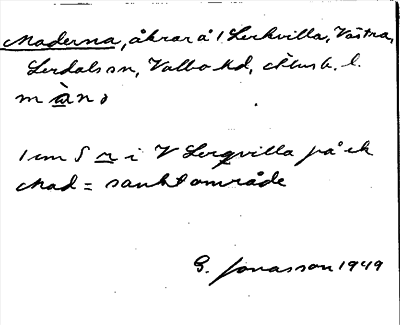 Maderna, åkrar å 1 Lerkvilla, Västra
Lerdals sn, Valbo hd, Älvsb. l.
m à n ɔ
1 cm S r i V Lerqvilla på ek
Mad = sankt område
G. Jonasson 1949